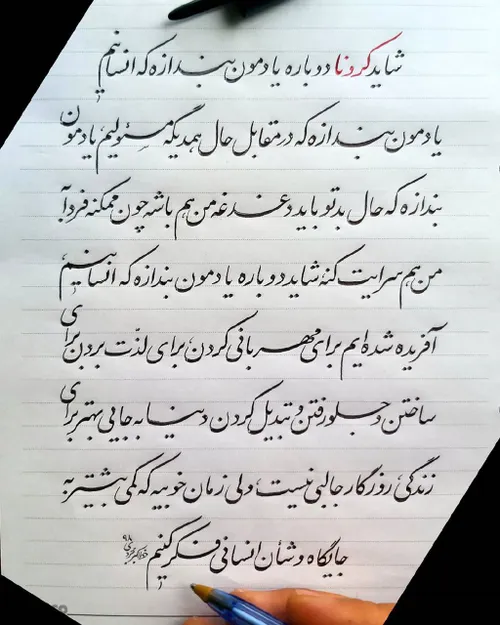 شاید کرونا دوباره یادمون بندازه که انسانیم
یادمون بندازه که در مقابل حال همدیگه مسئولیم، یادمون
بندازه که حال بد تو باید دغدغه من هم باشه چون ممکنه فردا به
من هم سرایت کنه شاید دوباره یادمون بندازه که انسانیم
آفریده شده‌ایم برای مهربانی کردن، برای لذت بردن برای
ساختن و جلو رفتن و تبدیل کردن دنیا به جایی بهتر برای
زندگی، روزگار جالبی نیست، ولی زمان خوبیه که کمی بیشتر به
جایگاه و شأن انسانی فکر کنیم